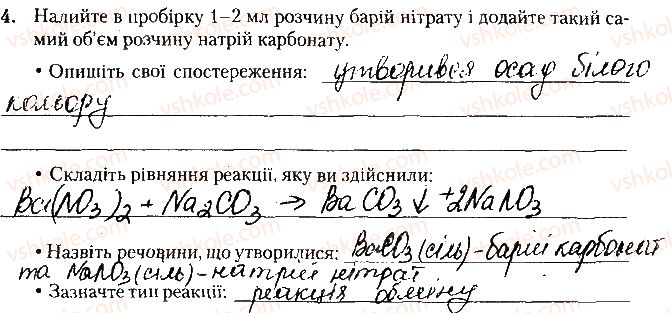 4. Налийте в пробірку 1–2 мл розчину барій нітрату і додайте такий са-
мий об'єм розчину натрій карбонату.
• Опишіть свої спостереження: утворився осад білого
кольору
• Складіть рівняння реакції, яку ви здійснили:
Ba(NO3)2 + Na2CO3 → BaCO3↓ + 2NaNO3
• Назвіть речовини, що утворилися: BaCO3 (сіль) - барій карбонат
та NaNO3 (сіль) - натрій нітрат
• Зазначте тип реакції: реакція обміну